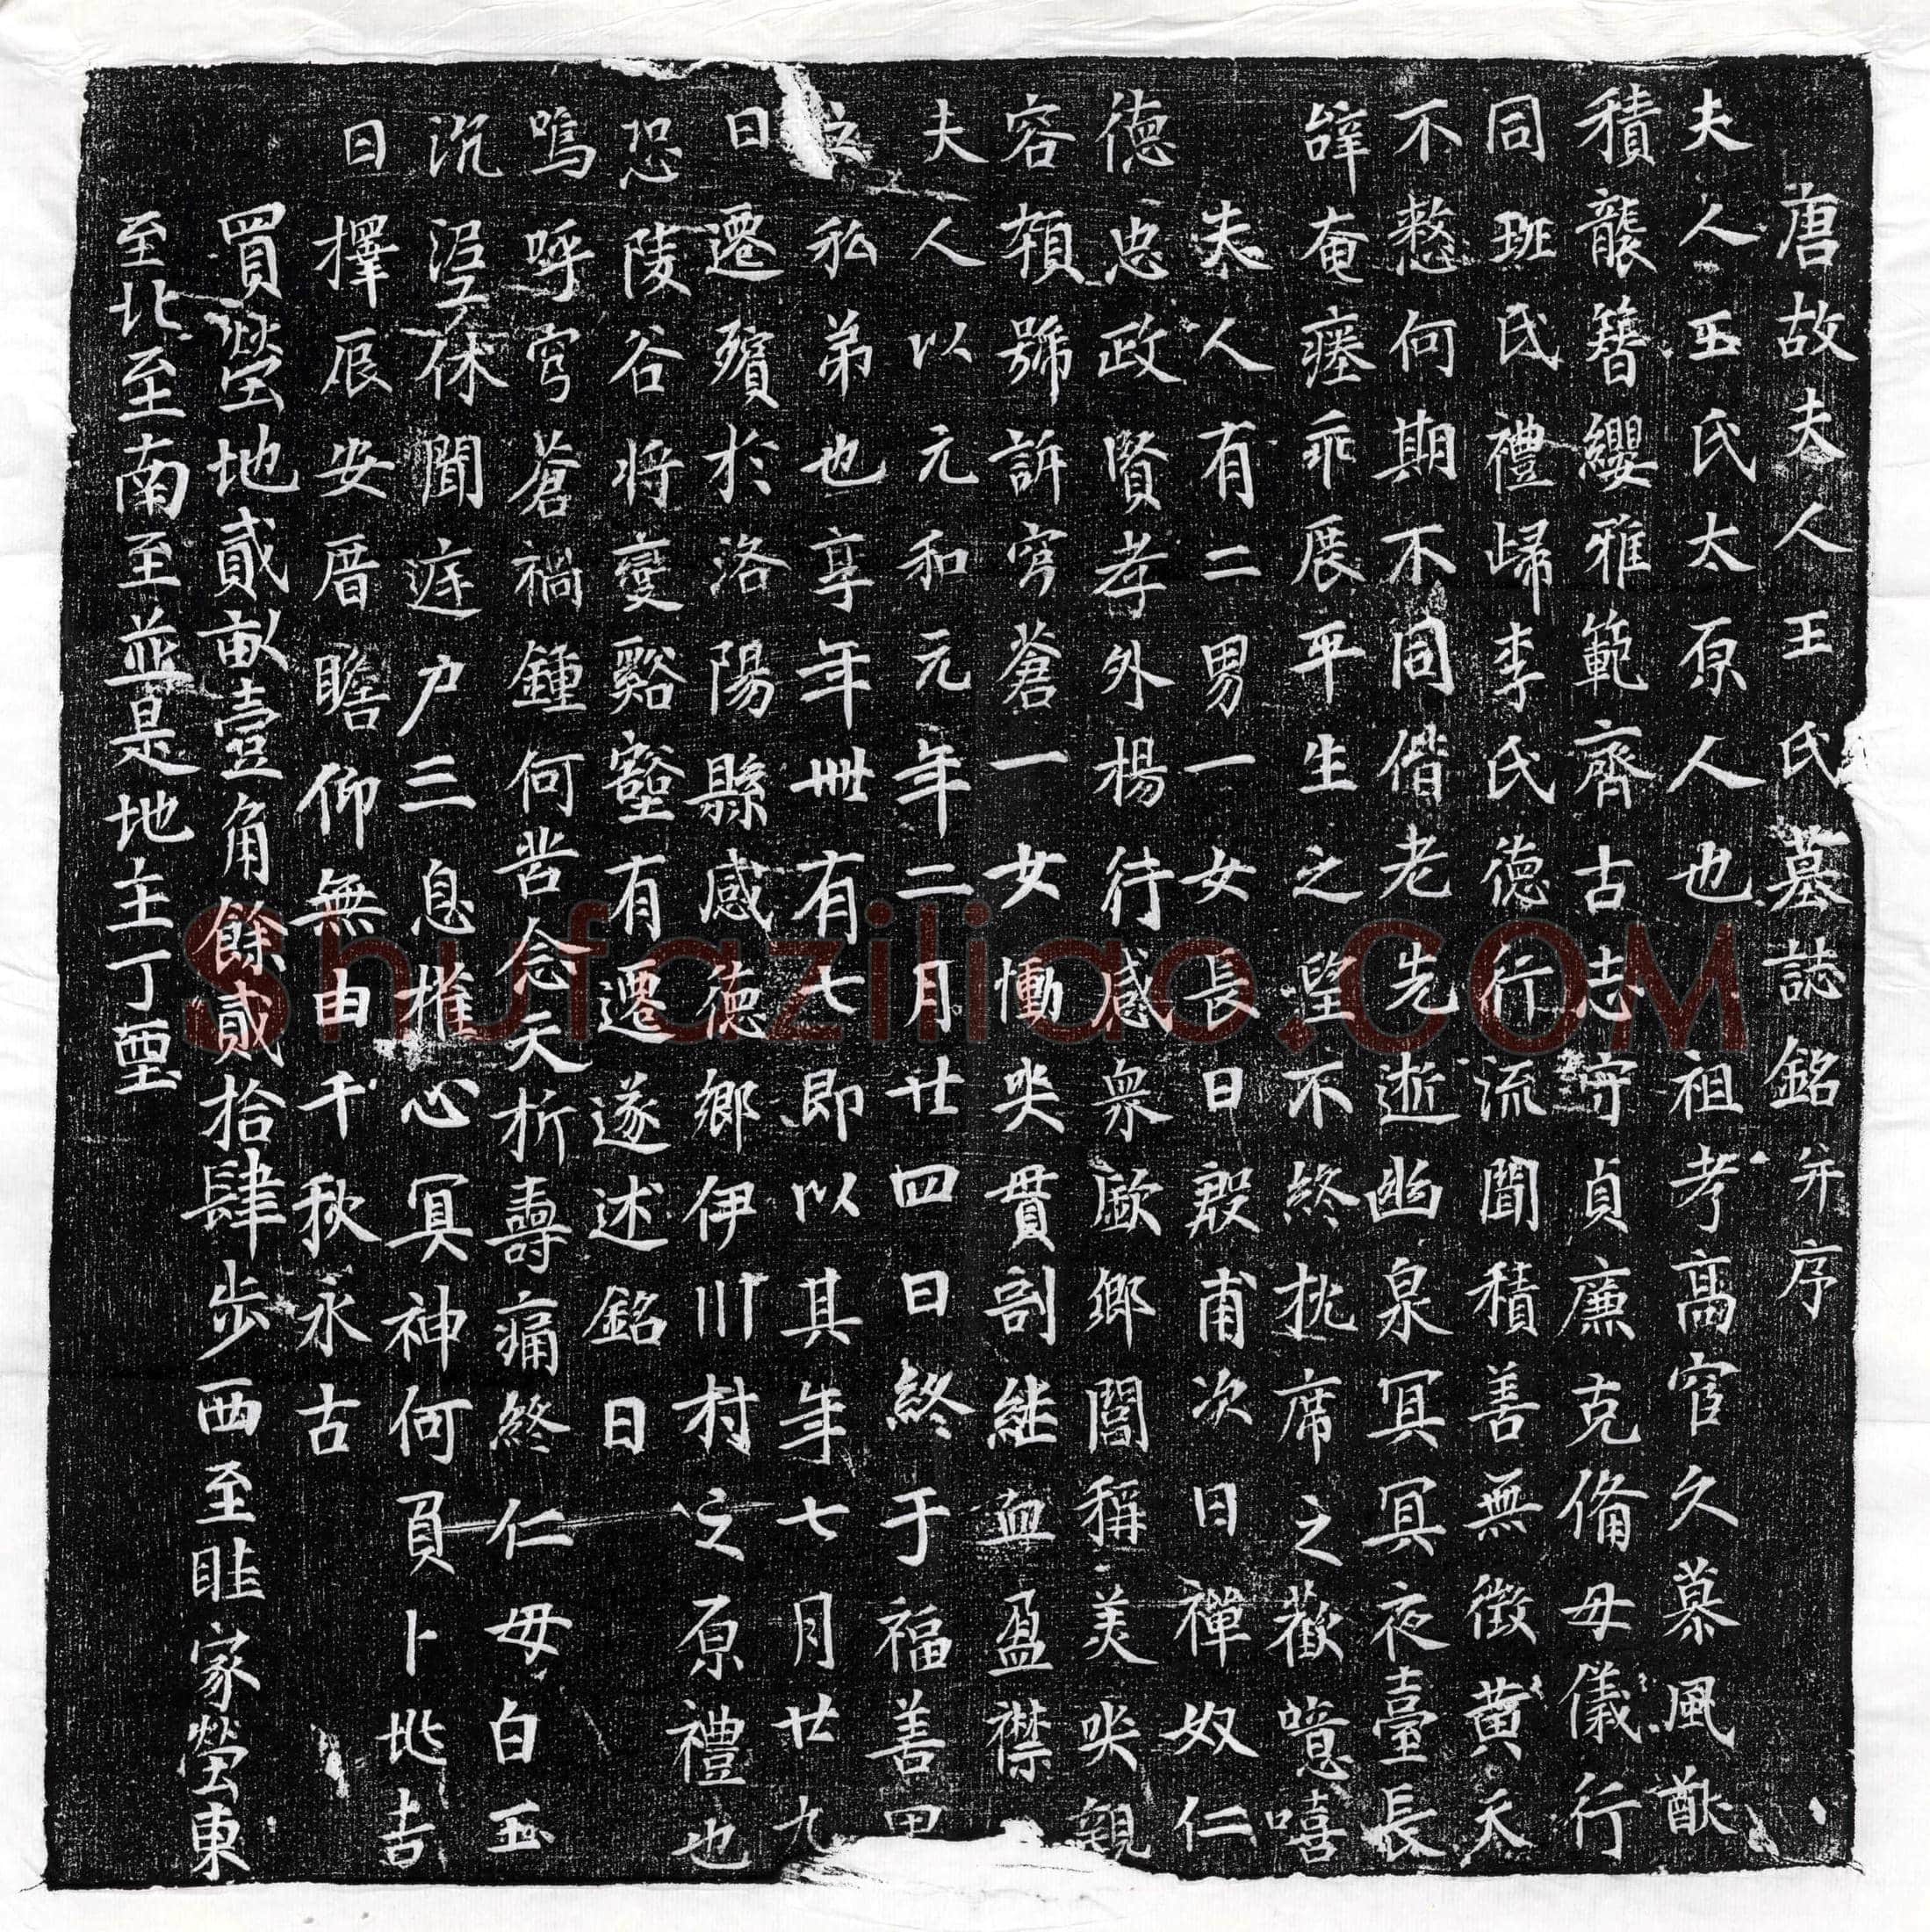 唐故夫人王氏墓誌銘并序
夫人王氏太原人也祖考高官久慕風猷
積襲簪纓雅範齊古志守貞廉克脩母儀行
同班氏禮歸李氏德行流聞積善無徵黃天
不慭何期不同偕老先逝幽泉冥冥夜臺長
辭奄瘞乖展平生之望不終枕席之歡噫嘻
夫人有二男一女長曰殷甫次曰禪奴仁
德忠政賢孝外楊行感眾歐鄉閭稱美哭親
容頯號訴穹蒼一女慟哭貫割继血盈襟
夫人以元和元年二月廿四日終于福善里
之私弟也享年卌有七即以其年七月廿九
日遷殯於洛陽縣感德鄉伊川村之原禮也
恐陵谷將變谿壑有遷遂述銘曰
嗚呼穹蒼禍鍾何苦念夭折壽痛終仁母白玉
沉泥休聞庭户三息摧心冥神何負卜兆吉
日擇辰安厝瞻仰無由千秋永古
買塋地貳畝壹角餘貳拾肆步西至眭家塋東
至北至南至並是地主丁
Shufaziliao.com